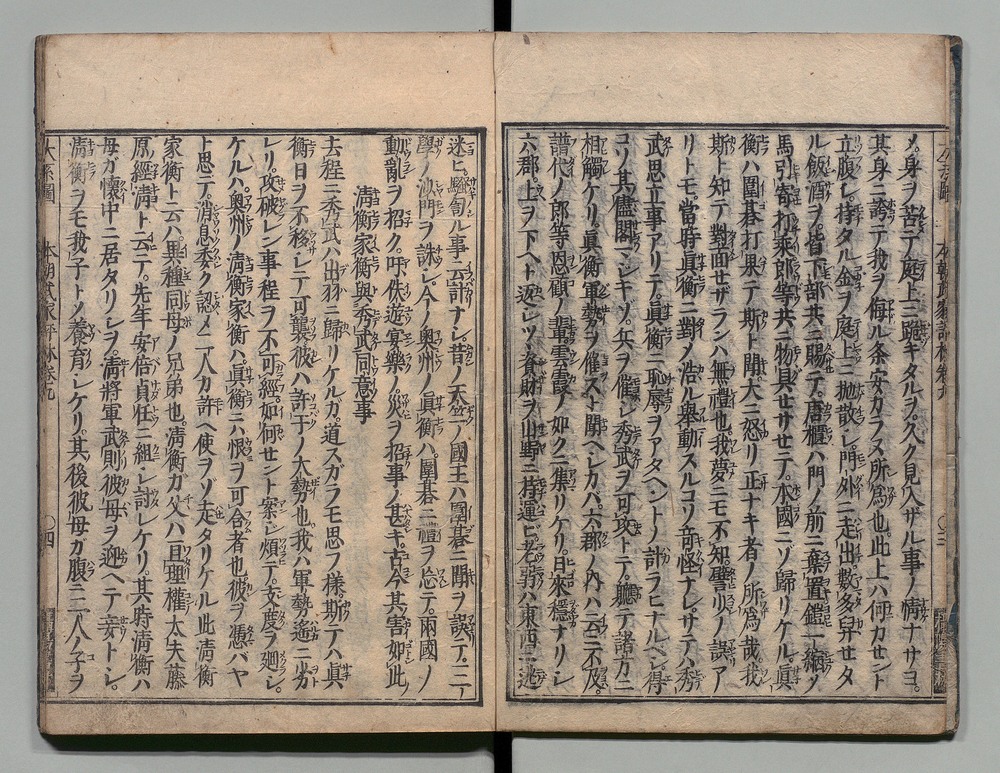 メ。身ヲ苦テ庭上ニ跪キタルヲ。久ク見入ザル事ノ情ナサヨ。
其身ニ誇テ我ヲ侮ル条安カラヌ所爲也。此上ハ何カセント
立腹レ。持タル金ヲ庭上ニ抛散レ。門外ニ走出。數多舁せタ
ル飯酒ヲ。皆下部共ニ賜テ。唐櫃ハ門ノ前ニ棄置。鎧一縮〆
馬引寄打乘。郎等共ニ物具せサせテ。本國ニゾ歸リケル。眞
衡ハ圍碁打果テ斯ト聞。大ニ怒リ正ナキ者ノ所爲哉。我
斯ト知テ對面せザランハ無禮也。我夢ニモ不知。譬少ノ誤ア
リトモ當時眞衡ニ對〆浩ル擧動スルコソ奇怪ナレ。サテハ秀
武思立事アリテ眞衡ニ恥辱ヲアタヘントノ計ラヒナルベレ。得
コソ其儘閣マシキゾ。兵ヲ催レ秀武ヲ可攻トテ。聽テ諸方ニ
相觸ケリ。眞衡軍勢ヲ催スト聞ヘレカバ。六郡ノ内ハ云ニ不及。
譜代ノ郎等恩顧ノ輩雲霞ノ如クニ集リケリ。日來穩ナリレ
六郡。上ヲ下ヘト返レツ。資財ヲ山野ニ持運ヒ。老弱ハ東西ニ逃
本朝武家評林卷九
〇三
迷ヒ騷動スル事云計ナレ。昔ノ天竺ノ國王ハ圍碁ニ聞ヲ誤テ。一
學ノ沙門ヲ誅レ。今ノ奥州ノ眞衡ハ。圍碁ニ禮ヲ忘テ。兩國ノ
動亂ヲ招ク。吁佚遊宴樂ノ災ヲ招事ノ甚キ。古今其害如此
清衡家衡與秀武同意事
去程ニ秀武ハ出羽ニ歸リケルカ。道スガラモ思フ樣。斯テハ眞
衡日ヲ不移レテ可襲。彼ハ許多ノ大勢也。我ハ軍勢遙ニ劣
レリ。攻破レン事程ヲ不可經。如何せント案レ煩テ。支度ヲ廻レ
ケルハ。奥州ノ清衡家衡ハ。眞衡ニ恨ヲ可含者也。彼ヲ憑バヤ
ト思テ消息委ク認メ。二人カ許ヘ使ヲゾ走タリケル。此清衡
家衡ト云ハ。異種同母ノ兄弟也。清衡ガ父ハ亘理權太夫藤
原經清ト云テ。先年安倍貞任ニ組レ討レケリ。其時清衡ハ
母ガ懷中ニ居タリレヲ。清將軍武則彼母ヲ迎ヘテ妾トレ。
清衡ヲモ我子トノ養育レケリ。其後彼母ガ腹ニ一人ノ子ヲ
大系圖
本朝武家評林卷九
〇四